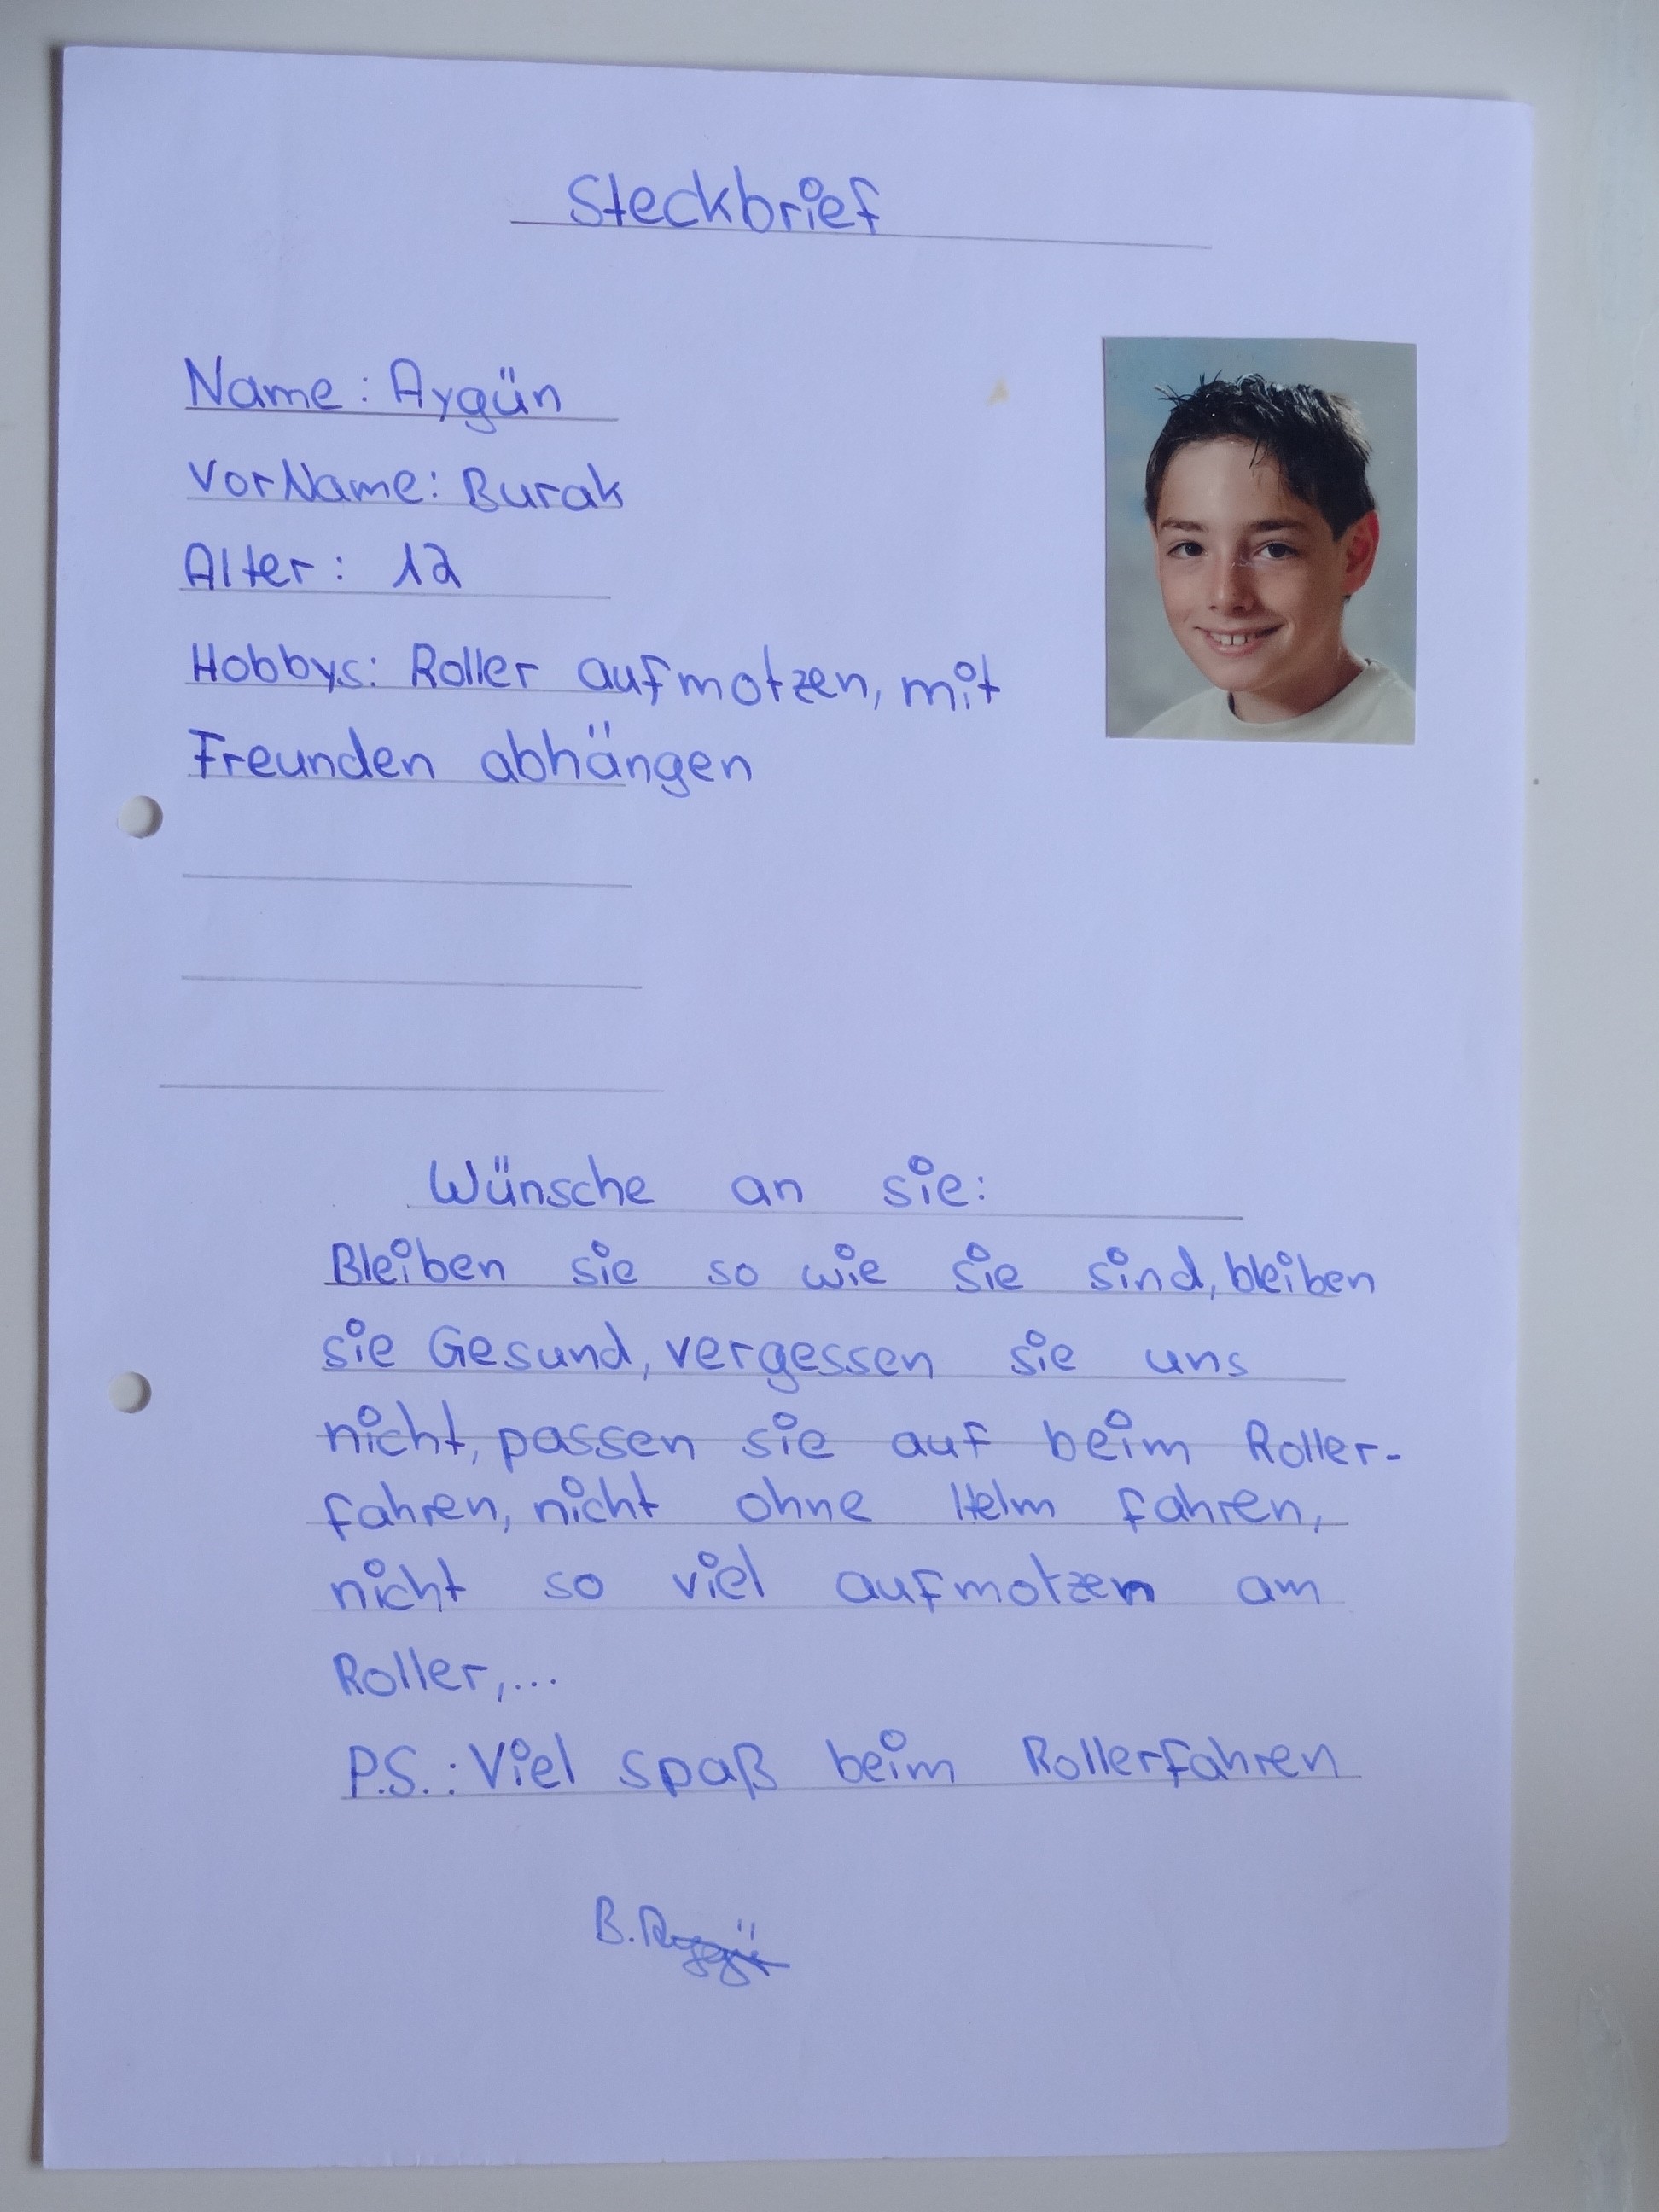 Steckbrief
Name: Aygün
VorName: Burak
Alter: 12
Hobbys: Roller aufmotzen, mit
Freunden abhängen
Wünsche an sie:
Bleiben sie so wie sie sind, bleiben
sie Gesund, vergessen sie uns
nicht, passen sie auf beim Roller-
fahren, nicht ohne Helm fahren,
nicht so viel aufmotzen am
Roller,...
P.S.: Viel spaß beim Rollerfahren
B.